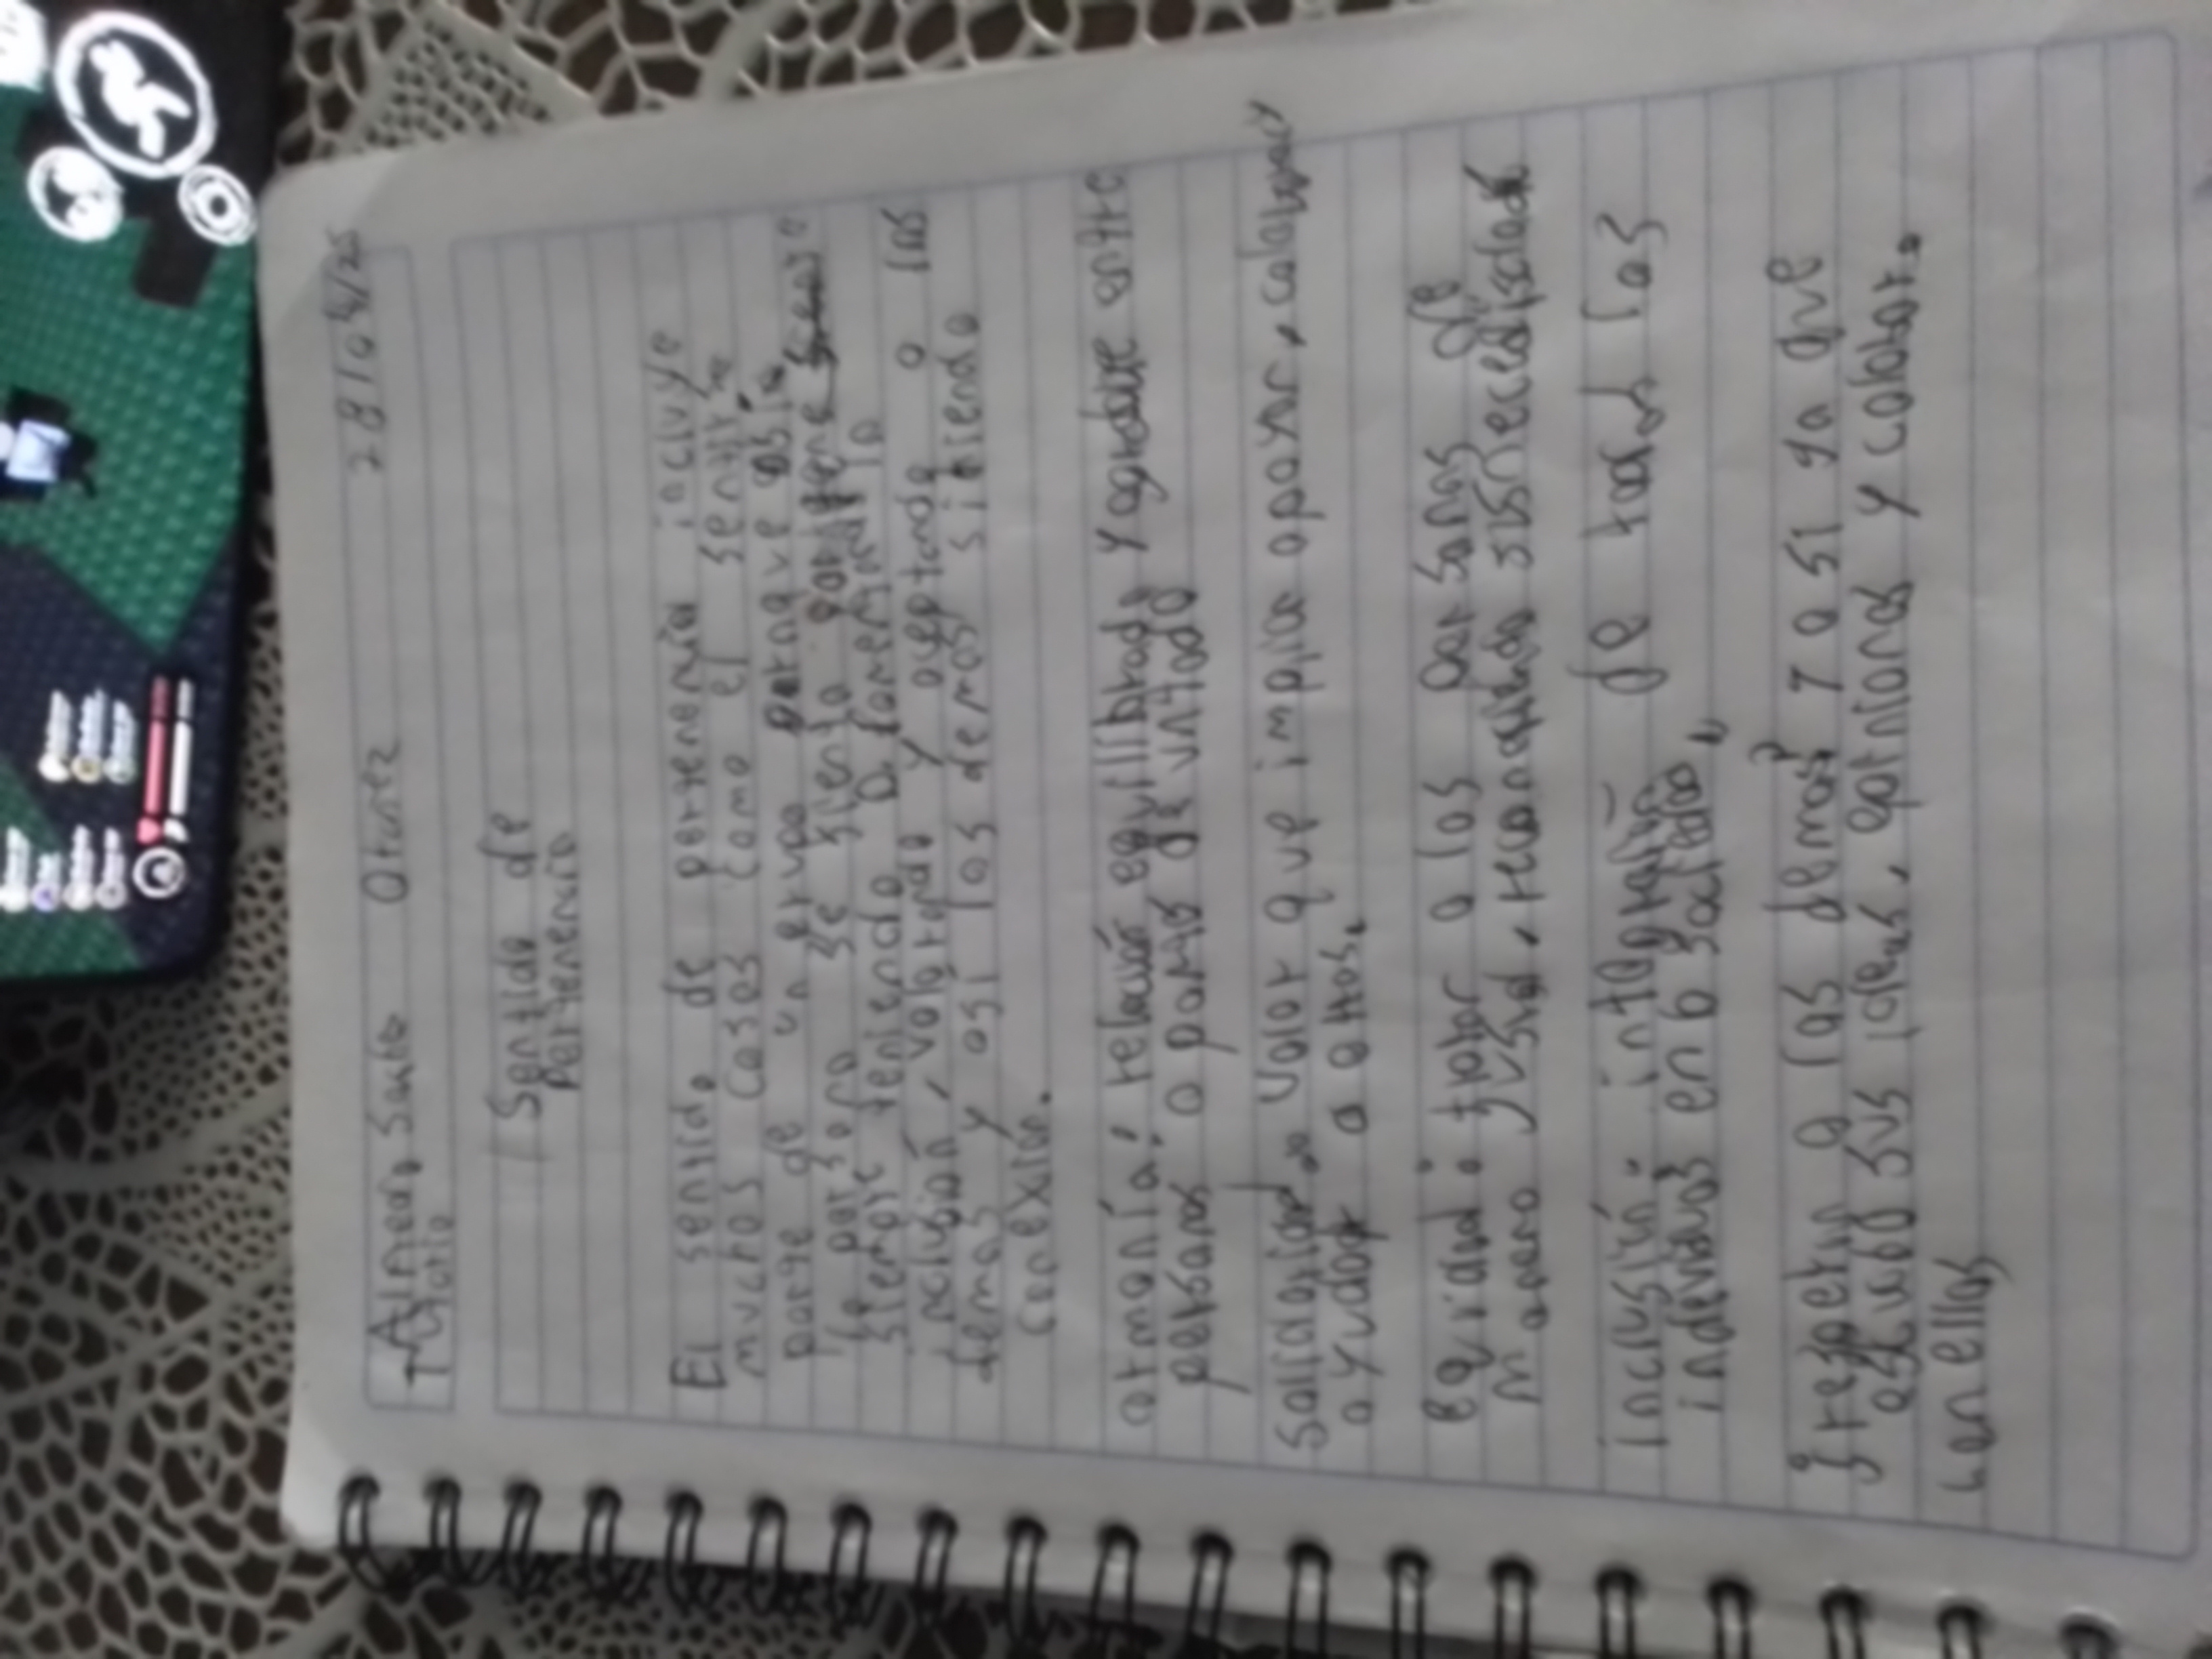 Almeda Santo Otuñez 28/04/25
Sentido de
Pertenencia
El sentido de pertenencia incluye
muchas cosas como el sentirse
parte de un grupo
la persona se siente
siempre teniendo a fomentando la
inclusión, valorando y aceptando a las
demas y asi los demas sintiendo
conexión.
armonía: relación equilibrada y agradable entre
personas o partes de unidad
Solidaridad valor que implica apoyar, colaborar
ayudar a otros.
equidad: tratar a las personas de
manera justa, reconociendo
inclusión: integración de todas las
en sociedad
respetar a las demas y asi ya que
sus ideas, opiniones y colabar.
con ellas